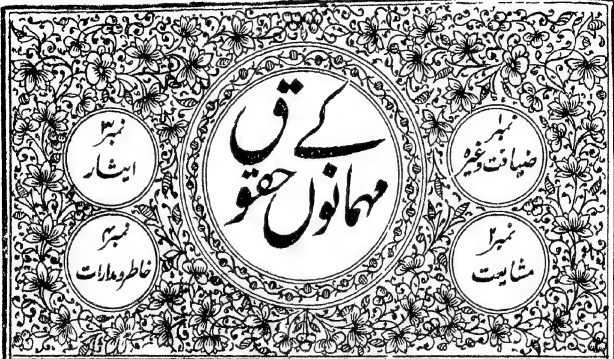 مہمانوں کے حقوق
نمبر ۱
ضیافت وغیرہ
نمبر ۲
مشایعت
نمبر ۳
ایثار
نمبر ۴
خاطر و مدارات